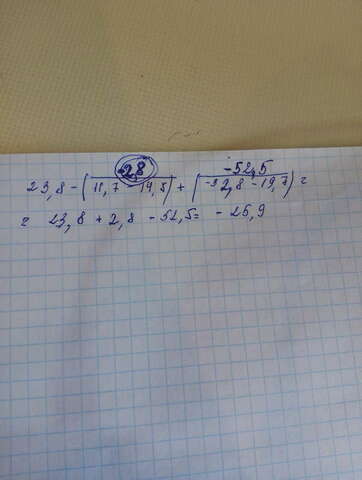 -2,8 -52,5
23,8 - (11,7 - 14,5) + (-32,8 - 19,7) =
= 23,8 + 2,8 - 52,5 = - 25,9